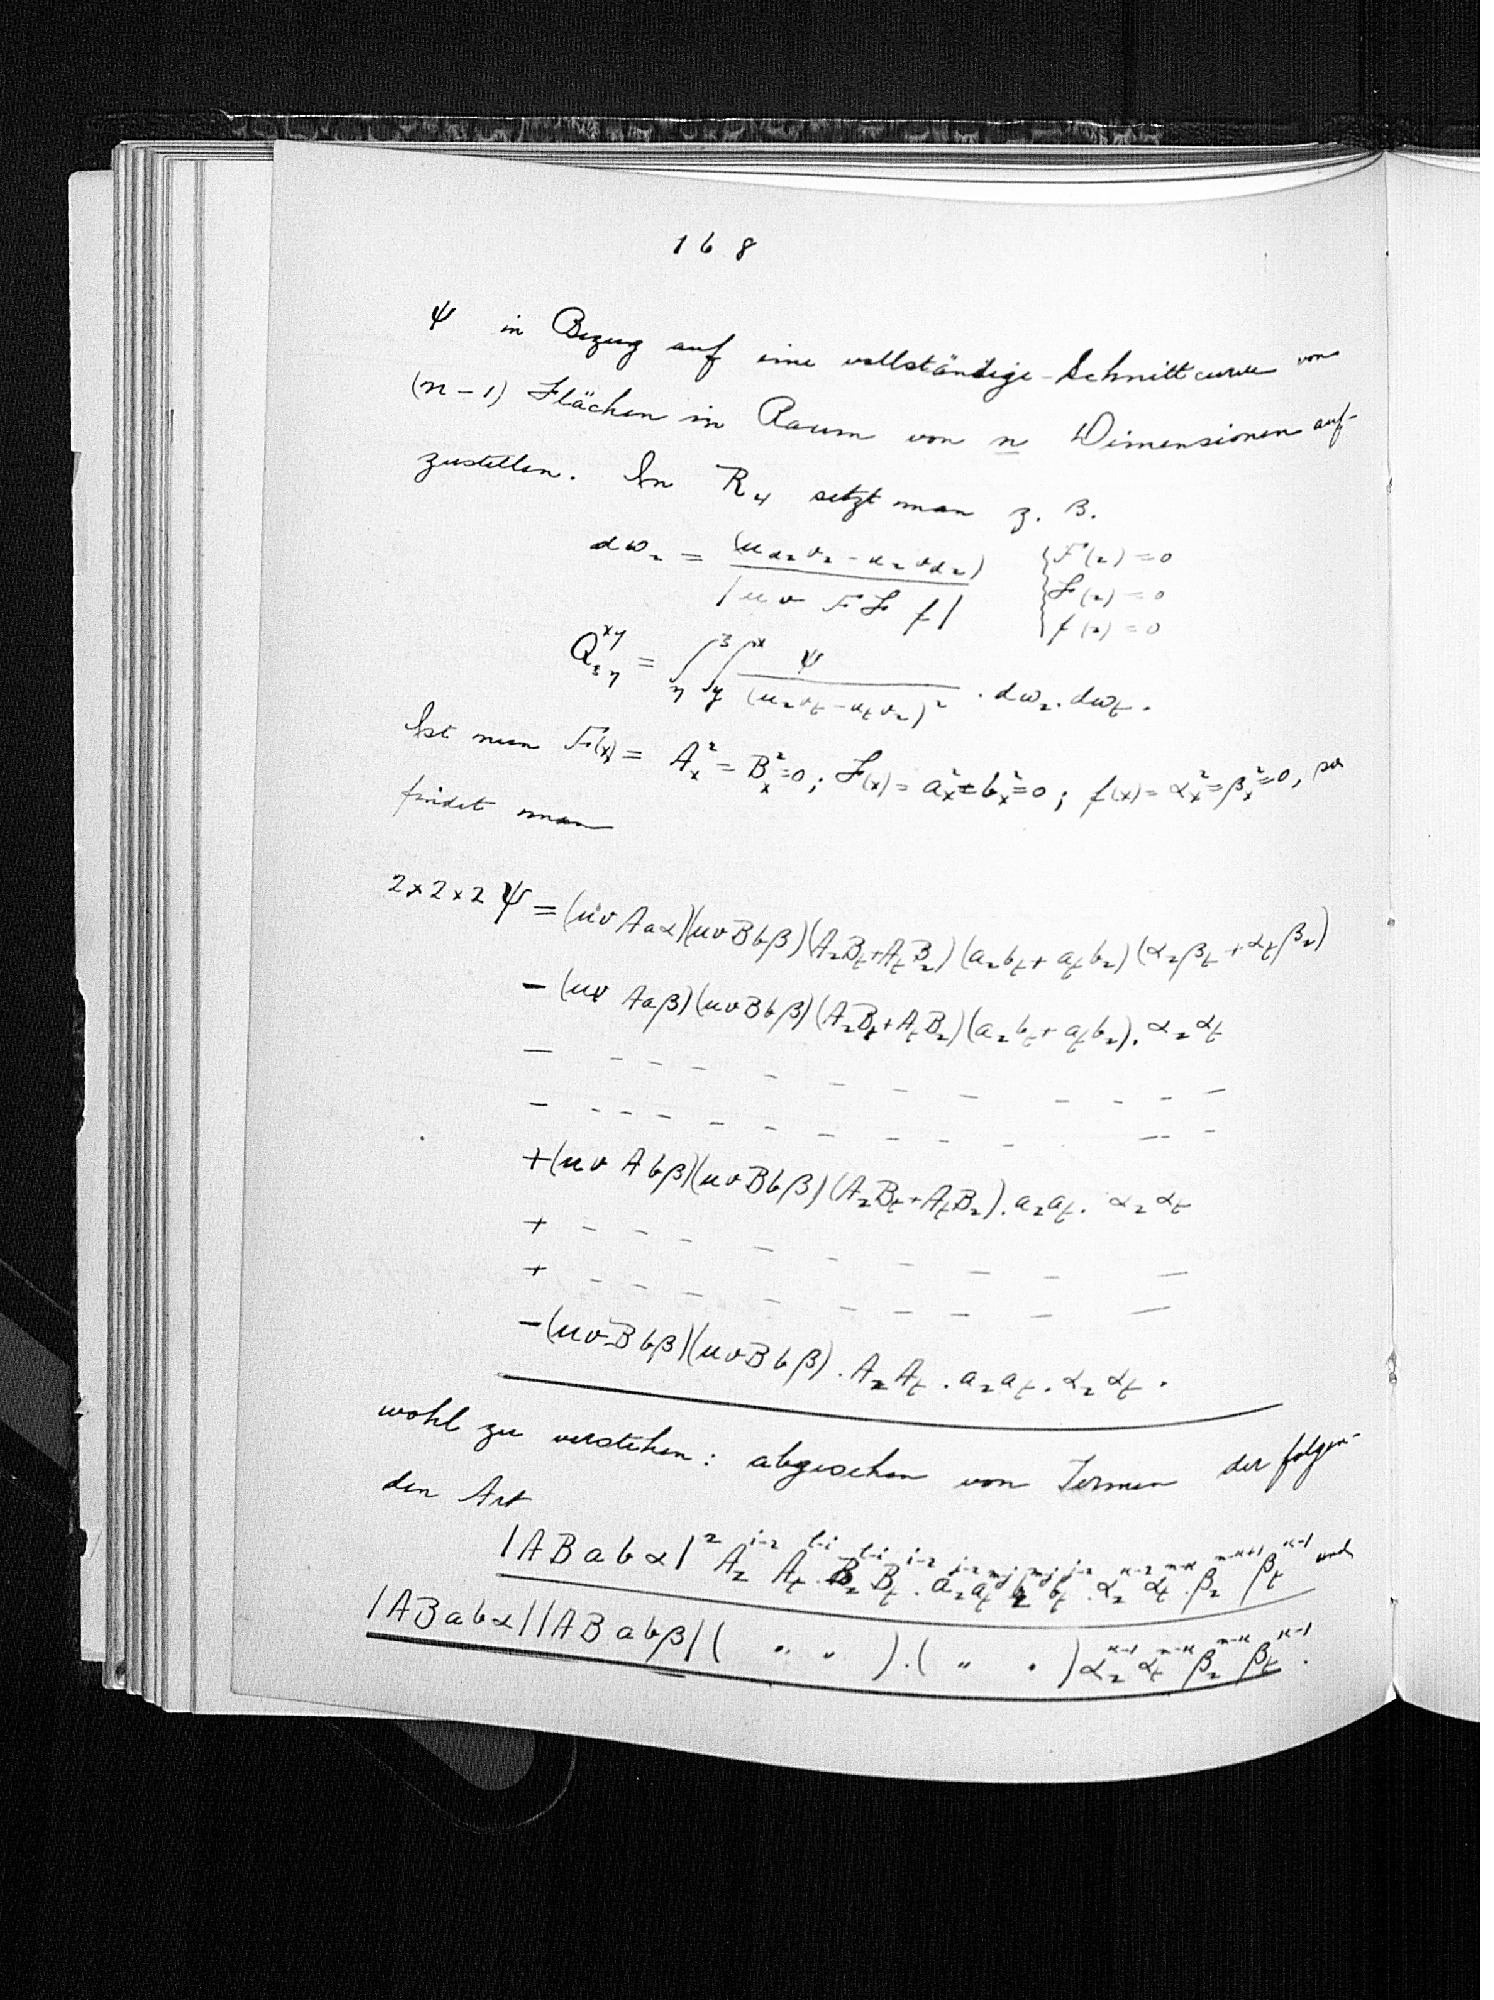 168
ψ in Bezug auf eine vollständige Schnittcurve von
(n-1) Flächen im Raum von n Dimensionen auf-
zustellen. In R₄ setzt man z. B.
dω_z = (u_{dz} v_z - u_z v_{dz}) / |u v F ℱ f|   { F(z) = 0
ℱ(z) = 0
f(z) = 0
Q^{xy}_{ξη} = ∫_η^ξ ∫_y^x ψ / (u_z v_t - u_t v_z)² · dω_z · dω_t.
Ist nun F(x) = A_x² = B_x² = 0; ℱ(x) = a_x² = b_x² = 0; f(x) = α_x² = β_x² = 0, so
findet man
2×2×2 ψ = (uvAaα)(uvBbβ)(A_zB_t+A_tB_z)(a_zb_t+a_tb_z)(α_zβ_t+α_tβ_z)
- (uvAaβ)(uvBbβ)(A_zB_t+A_tB_z)(a_zb_t+a_tb_z). α_zα_t
- - - - - - - - - - - - -
- - - - - - - - - - - - -
+(uvAbβ)(uvBbβ)(A_zB_t+A_tB_z). a_za_t. α_zα_t
+ - - - - - - - - - -
+ - - - - - - - - - -
-(uvBbβ)(uvBbβ). A_zA_t. a_za_t. α_zα_t.
wohl zu verstehen: abgesehen von Termen der folgen-
den Art
|ABabα|² A_z^{i-2} A_t^{l-i}. B_z^{l-i} B_t^{i-2}. a_z^{j-2} a_t^{m-j} b_z^{m-j} b_t^{j-2}. α_z^{κ-2} α_t^{n-κ}. β_z^{n-κ+1} β_t^{κ-1} und
|ABabα||ABabβ|( " " ).( " " )α_z^{κ-1} α_t^{n-κ} β_z^{n-κ} β_t^{κ-1}.